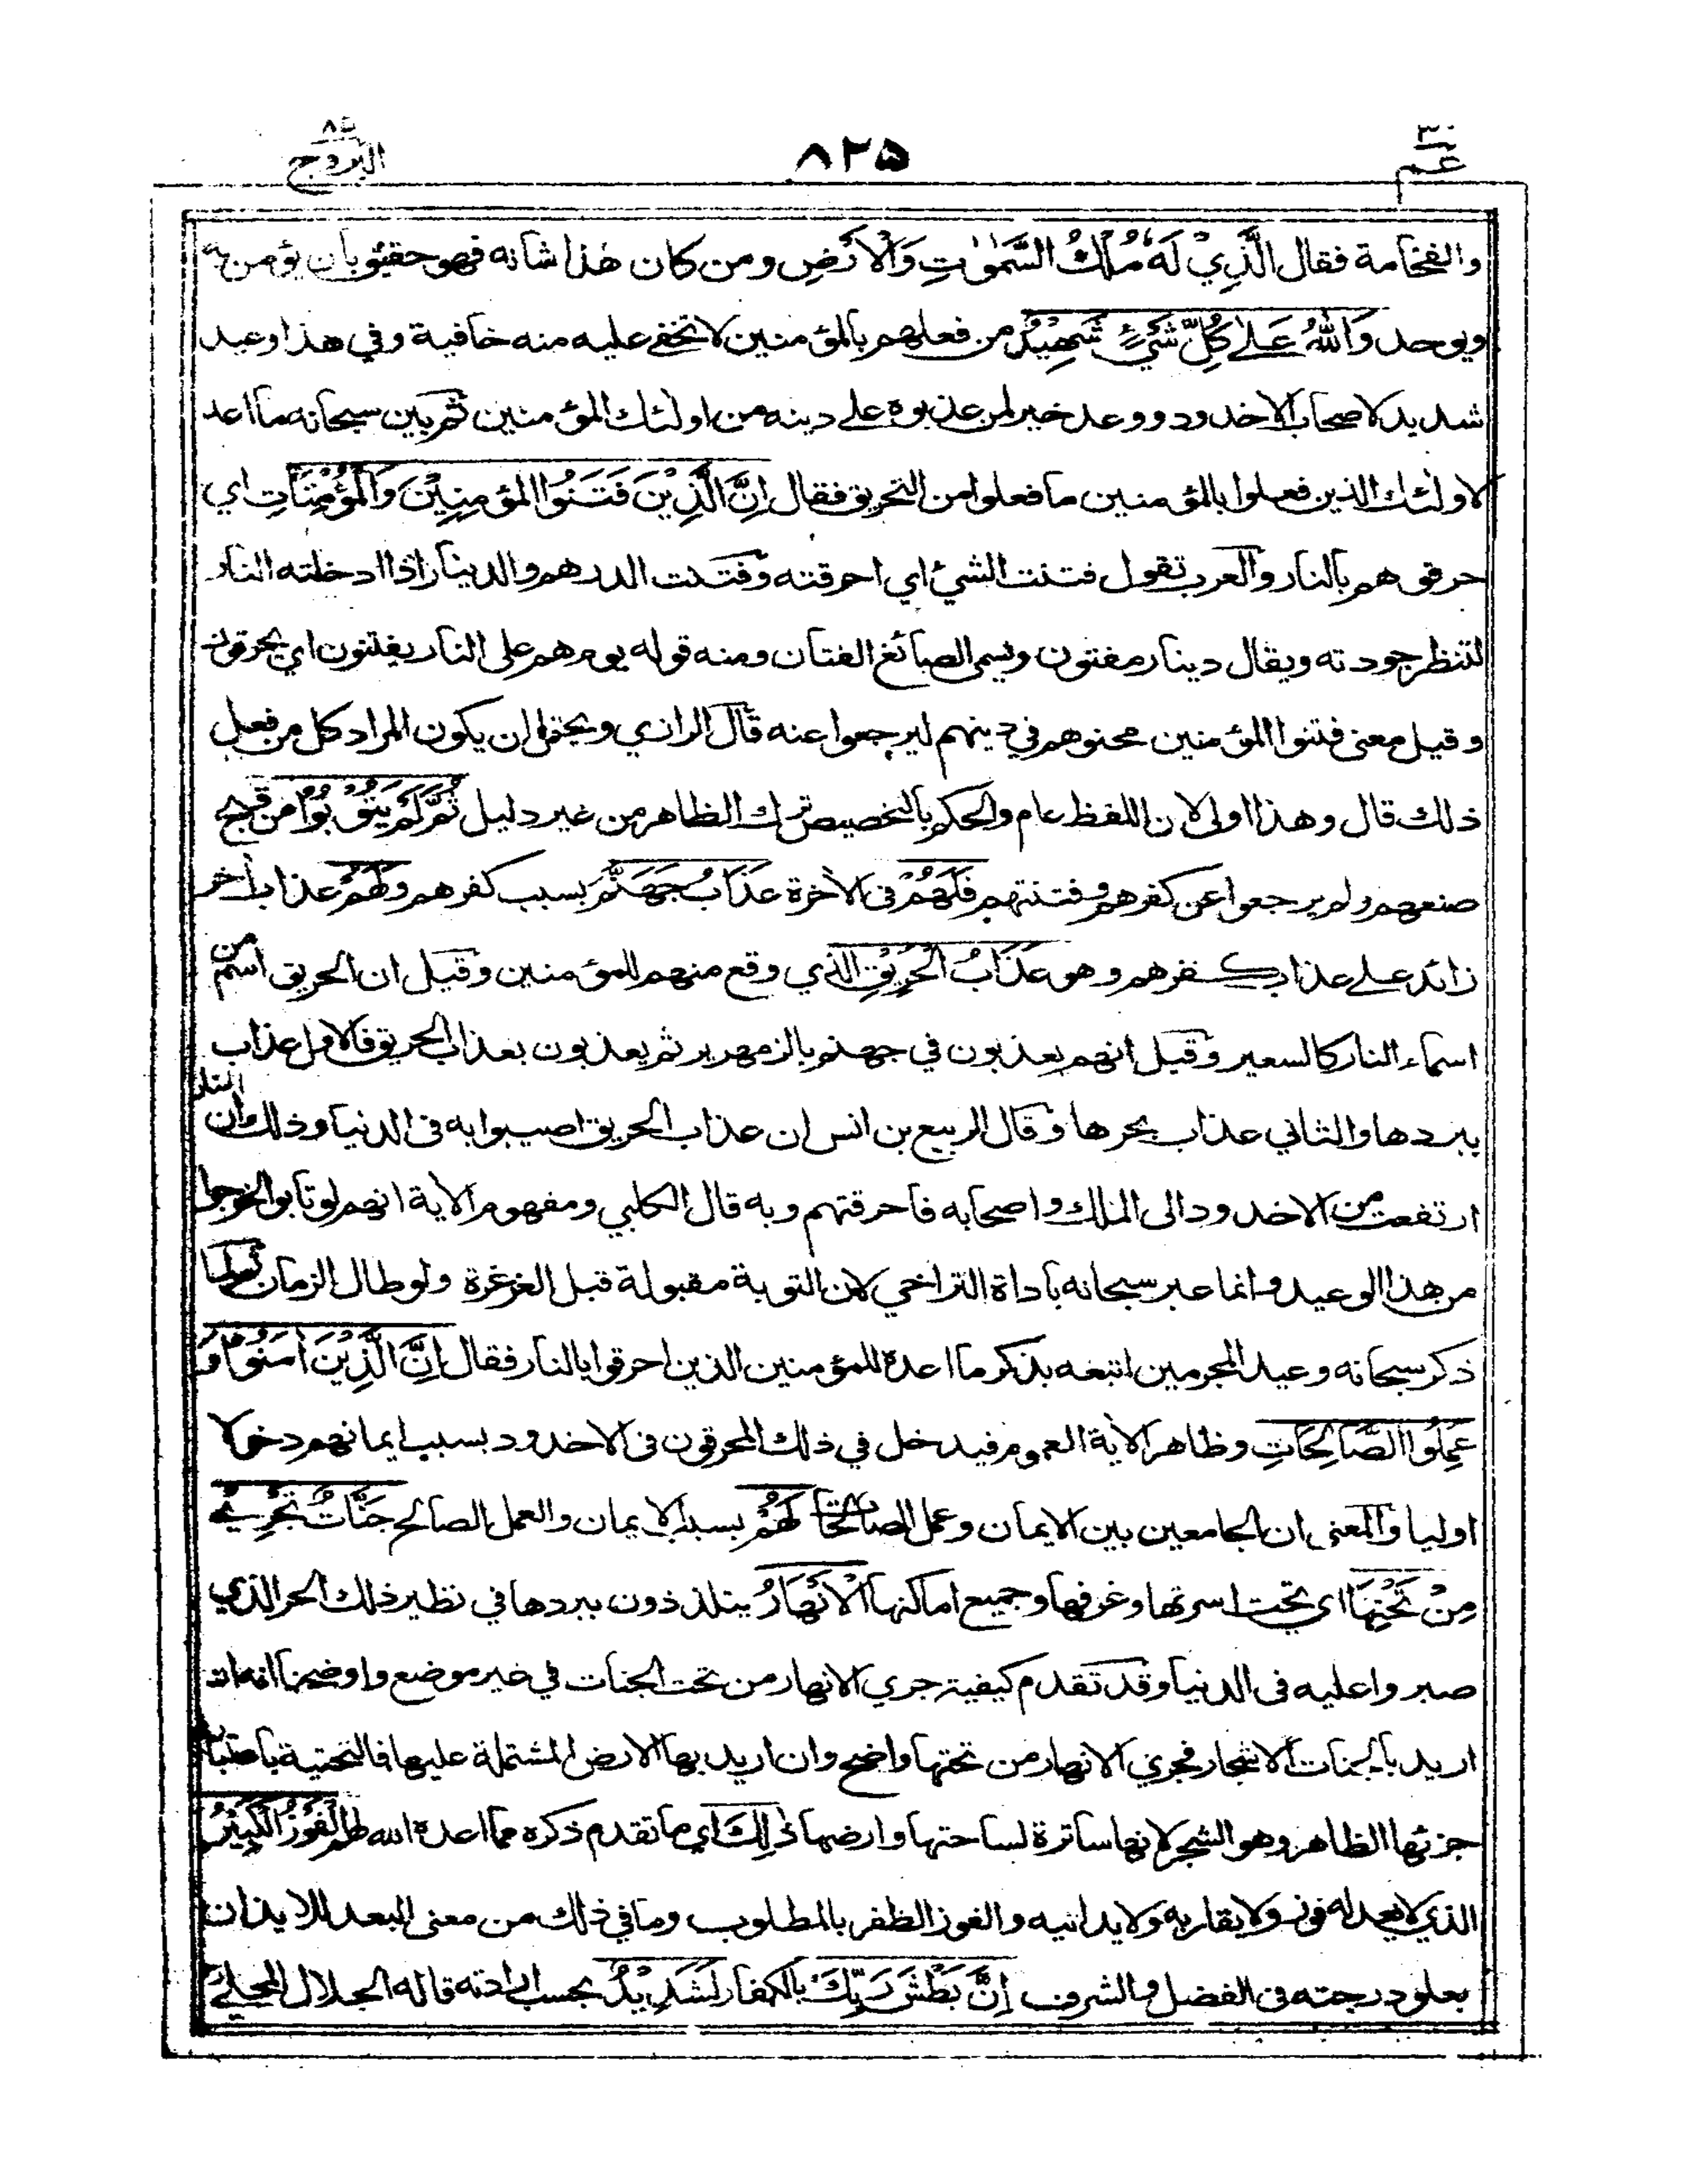 ٣٠
عم
٨٢٥
٨٥
البروج
والفخامة فقال الَّذِيْ لَهُ مُلْكُ السَّمٰوٰتِ وَالْاَرْضِ ومن كان هٰذا شانه فهو حقيق بان يؤمن به
ويوحد وَاللّٰهُ عَلٰے كُلِّ شَيْءٍ شَهِيْدٌ من فعلهم بالمؤمنين لا تخفے عليه منه خافية وفي هذا وعيد
شديد لاصحاب الاخدود ووعد خير لمن عذبوه علے دينه من اولئك المؤمنين ثم بين سبحانه ما اعد
لاولئك الذين فعلوا بالمؤمنين ما فعلوا من التحريق فقال اِنَّ الَّذِيْنَ فَتَنُوا الْمُؤْمِنِيْنَ وَالْمُؤْمِنَاتِ اي
حرقوهم بالنار والعرب تقول فتنت الشئ اي احرقته وفتنت الدرهم والدينار اذا ادخلته النار
لتنظر جودته ويقال دينار مفتون ويسمى الصائغ الفتان ومنه قوله يوم هم على النار يفتنون اي يحرقون
وقيل معنى فتنوا المؤمنين محنوهم في دينهم ليرجعوا عنه قال الرازي ويحتمل ان يكون المراد كل من فعل
ذلك قال وهذا اولى لان اللفظ عام والحكم بالتخصيص ترك الظاهر من غير دليل ثُمَّ لَمْ يَتُوْبُوْا من قبيح
صنعهم ولم يرجعوا عن كفرهم وفتنتهم فَلَهُمْ فى الاٰخرة عَذَابُ جَهَنَّمَ بسبب كفرهم وَلَهُمْ عذاب اٰخر
زائد علے عذاب كفرهم وهو عَذَابُ الْحَرِيْقِ الذي وقع منهم للمؤمنين وقيل ان الحريق اسم من
اسماء النار كالسعير وقيل انهم يعذبون في جهنم بالزمهرير ثم يعذبون بعذاب الحريق فالاول عذاب
ببردها والثاني عذاب بحرها وقال الربيع بن انس ان عذاب الحريق اصيبوا به فى الدنيا وذلك ان النار
ارتفعت من الاخدود الى الملك واصحابه فاحرقتهم وبه قال الكلبي ومفهوم الاٰية انهم لو تابوا لخرجوا
من هذا الوعيد وانما عبر سبحانه باداة التراخي لان التوبة مقبولة قبل الغرغرة ولو طال الزمان ثم لما
ذكر سبحانه وعيد المجرمين اتبعه بذكر ما اعده للمؤمنين الذين احرقوا بالنار فقال اِنَّ الَّذِيْنَ اٰمَنُوْا وَ
عَمِلُوا الصَّالِحَاتِ وظاهر الاٰية العموم فيدخل في ذلك المحرقون فى الاخدود بسبب ايمانهم دخولا
اوليا والمعنى ان الجامعين بين الايمان وعمل الصالحات لَهُمْ بسبب الايمان والعمل الصالح جَنَّاتٌ تَجْرِيْ
مِنْ تَحْتِهَا اي تحت اسرتها وغرفها وجميع اماكنها الْاَنْهَارُ يتلذذون ببردها في نظير ذلك الحر الذي
صبروا عليه فى الدنيا وقد تقدم كيفية جري الانهار من تحت الجنات في غير موضع واوضحنا انه ان
اريد بالجنات الاشجار فجري الانهار من تحتها واضح وان اريد بها الارض المشتملة عليها فالتحتية باعتبار
جزئها الظاهر وهو الشجر لانها ساترة لساحتها وارضها ذٰلِكَ اي ما تقدم ذكره مما اعده الله لهم الْفَوْزُ الْكَبِيْرُ
الذي لا يعدله فوز ولا يقاربه ولا يدانيه والفوز الظفر بالمطلوب وما في ذلك من معنى البعد للايذان
بعلو درجته فى الفضل والشرف اِنَّ بَطْشَ رَبِّكَ بالكفار لَشَدِيْدٌ بحسب ارادته قاله الجلال المحلي